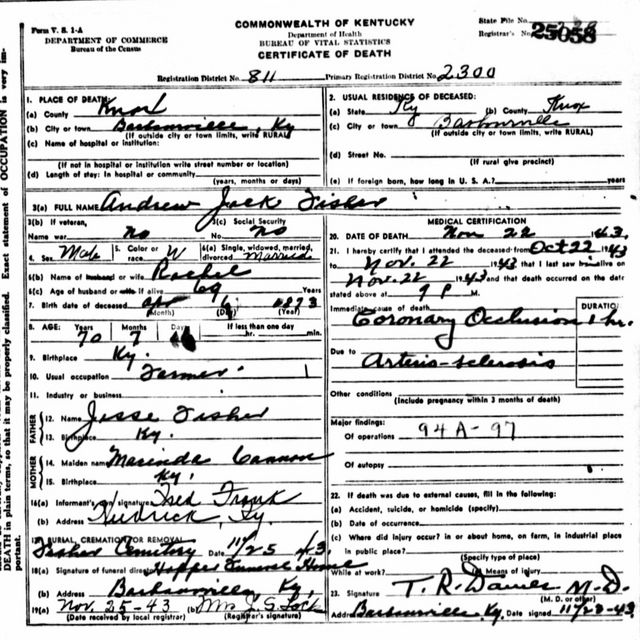 Form V. S. 1-A
DEPARTMENT OF COMMERCE
Bureau of the Census
COMMONWEALTH OF KENTUCKY
Department of Health
BUREAU OF VITAL STATISTICS
CERTIFICATE OF DEATH
State File No.
Registrar's No. 25058
Registration District No. 811 Primary Registration District No. 2300
1. PLACE OF DEATH:
(a) County Knox
(b) City or town Barbourville, Ky
(If outside city or town limits, write RURAL)
(c) Name of hospital or institution:
(If not in hospital or institution write street number or location)
(d) Length of stay: In hospital or community
(years, months or days)
2. USUAL RESIDENCE OF DECEASED:
(a) State Ky (b) County Knox
(c) City or town Barbourville
(If outside city or town limits, write RURAL)
(d) Street No.
(If rural give precinct)
(e) If foreign born, how long in U. S. A.? years
3(a) FULL NAME Andrew Jack Fisher
3(b) If veteran, 3(c) Social Security
Name war no No. no
4. Sex Male 5. Color or race W 6(a) Single, widowed, married, divorced Married
6(b) Name of husband or wife Rachel
6(c) Age of husband or wife if alive 69
7. Birth date of deceased Apr 6 1873
(Month) (Day) (Year)
8. AGE: Years Months Days If less than one day
70 7 16 hr. min.
9. Birthplace Ky.
10. Usual occupation Farmer
11. Industry or business
FATHER
12. Name Jesse Fisher
13. Birthplace Ky.
MOTHER
14. Maiden name Marinda Cannon
15. Birthplace Ky.
16(a) Informant's signature Fred Frank
(b) Address Ky.
17. BURIAL, CREMATION OR REMOVAL
Fisher Cemetery Date 11/25 43.
18(a) Signature of funeral director Hopper Funeral Home
(b) Address Barbourville, Ky.
19(a) Nov. 25-43 (b) Mrs J. G. Lock
(Date received by local registrar) (Registrar's signature)
MEDICAL CERTIFICATION
20. DATE OF DEATH Nov 22 1943.
21. I hereby certify that I attended the deceased from Oct 22 1943
to Nov. 22 1943 that I last saw h alive on
Nov. 22 1943 and that death occurred on the date
stated above at 9 P M.
Immediate cause of death DURATION
Coronary Occlusion 1 hr.
Due to Arterio-sclerosis
Other conditions
(Include pregnancy within 3 months of death)
Major findings:
Of operations 94A-97
Of autopsy
22. If death was due to external causes, fill in the following:
(a) Accident, suicide, or homicide (specify)
(b) Date of occurrence
(c) Where did injury occur? In or about home, on farm, in industrial place
in public place?
(Specify type of place)
While at work? Means of injury
23. Signature T. R. Davies M.D.
(M. D. or other)
Address Barbourville, Ky. Date signed 11-23-43
DEATH in plain terms, so that it may be properly classified. Exact statement of OCCUPATION is very im-
portant.